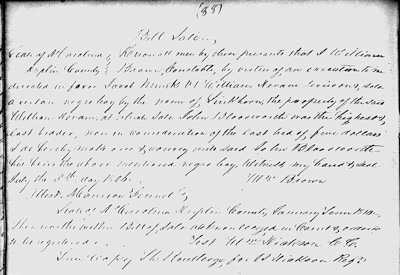 (38)
Bill Sale,
State of N. Carolina, Know all men by these presents that I William
Duplin County, Brown, Constable, by virtue of an execution to me
directed in favor Jacob Monk vs William Kenan Senious, sold
a certain negro boy by the name of the property of the said
William Kenan, at which Sale John Bloodworth was the highest
last bidder, now in consideration of the last bid of five dollars
I do hereby make over & convey unto said John Bloodworth
his heirs the above mentioned negro boy. Witness my hand & seal
July the 5th day 1806. Wm Brown
State of N. Carolina Duplin County, January Term 18
Then the within Bill of Sale was acknowledged in Court & ordered
to be registered. Test Wm Dickson C.C.
True Copy The Routledge, for Dickson Regr